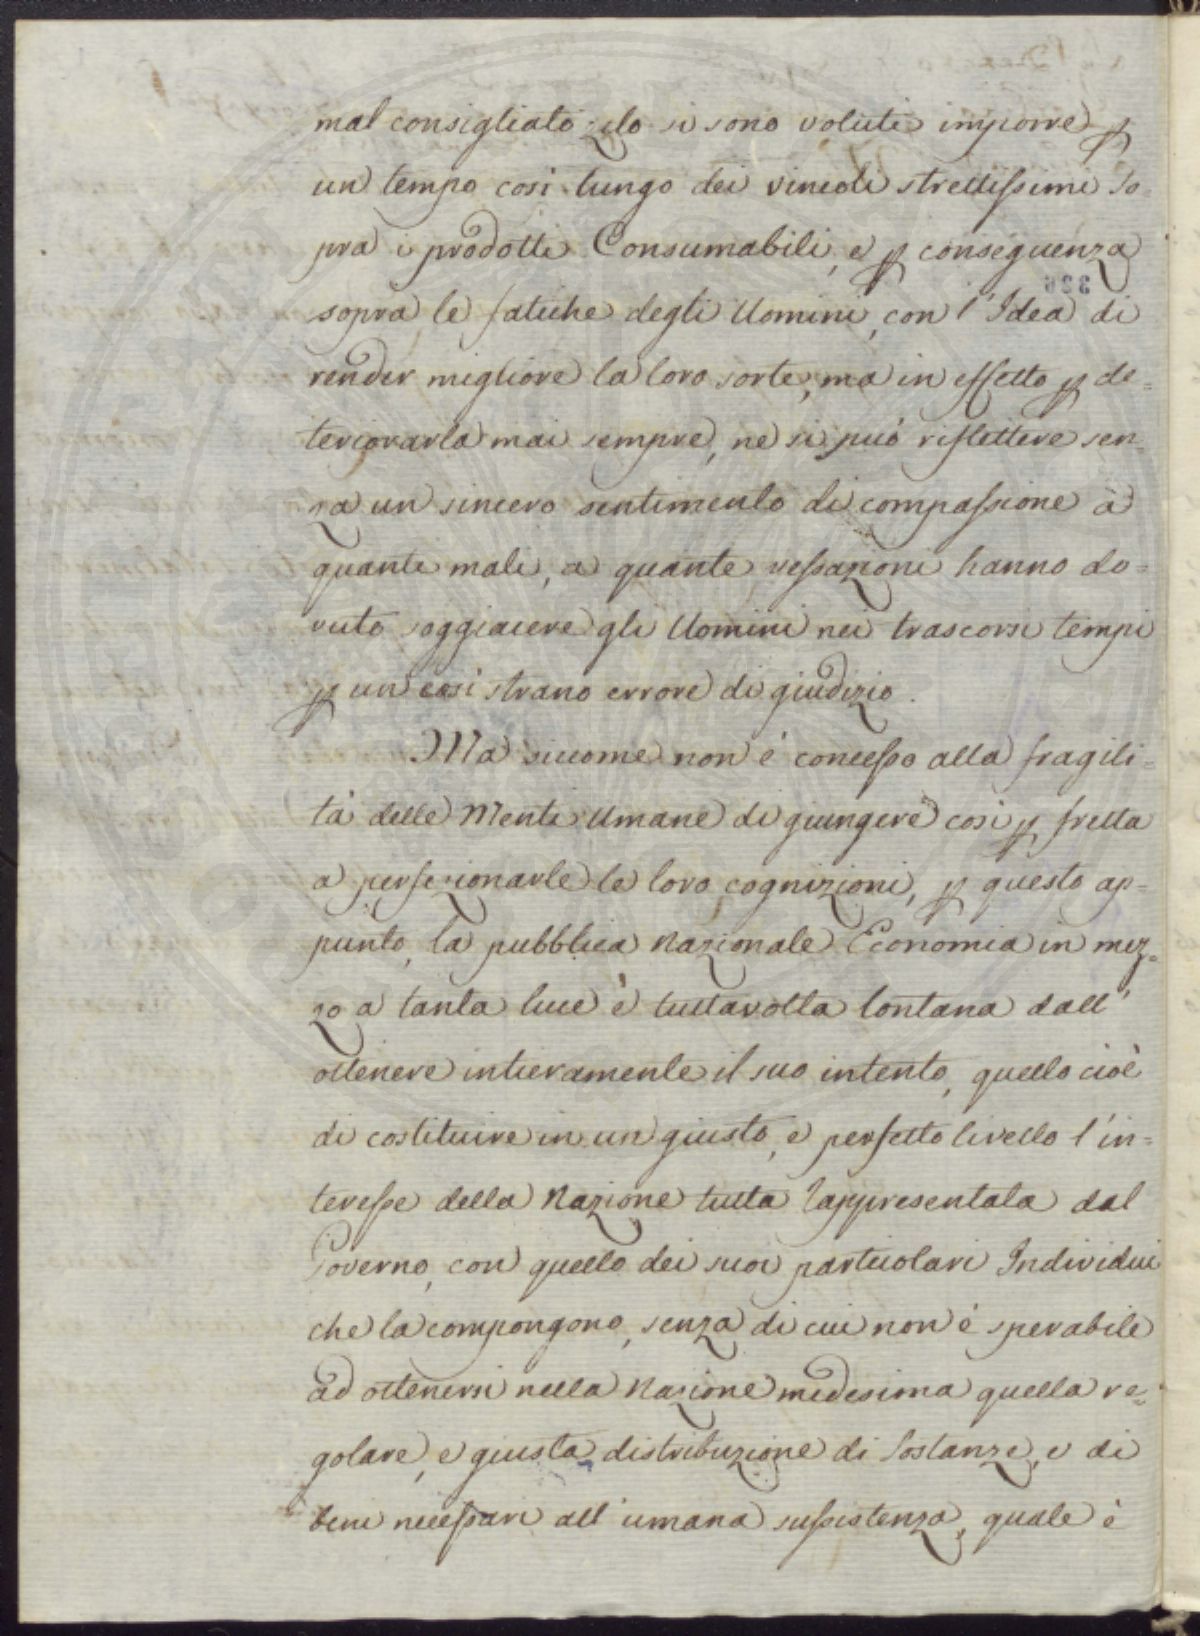 mal consigliato zelo si sono voluti imporre ꝑ
un tempo così lungo dei vincoli strettiſsimi so-
pra i prodotti Consumabili, e ꝑ conseguenza
sopra le fatiche degli Uomini, con l'Idea di
render migliore la loro sorte, ma in effetto ꝑ de=
teriorarla mai sempre, ne si può riflettere sen-
za un sincero sentimento di compaſsione a
quanti mali, a quante veſsazioni hanno do=
vuto soggiacere gli Uomini nei trascorsi tempi
ꝑ un così strano errore di giudizio.
Ma siccome non è conceſso alla fragili=
tà delle Menti Umane di giungere così ꝑ fretta
a perfezionarle le loro cognizioni, ꝑ questo ap=
punto, la pubblica Nazionale Economia in mez=
zo a tanta luce è tuttavolta lontana dall'
ottenere intieramente il suo intento, quello cioè
di costituire in un giusto, e perfetto livello l'in=
tereſse della Nazione tutta rappresentata dal
Governo, con quello dei suoi particolari Individui
che la compongono, senza di cui non è sperabile
ad ottenersi nella Nazione medesima quella re=
golare, e giusta distribuzione di Sostanze, e di
beni neceſsari all'umana suſsistenza, quale è